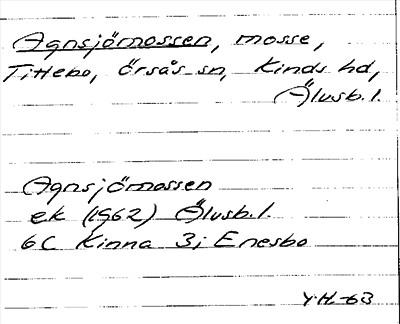 Agnsjömossen, mosse,
Tittebo, Örsås sn, Kinds hd,
Älvsb. l.
Agnsjömossen
ek (1962) Älvsb. l.
6C Kinna 3i Enesbo
Y.H. -63